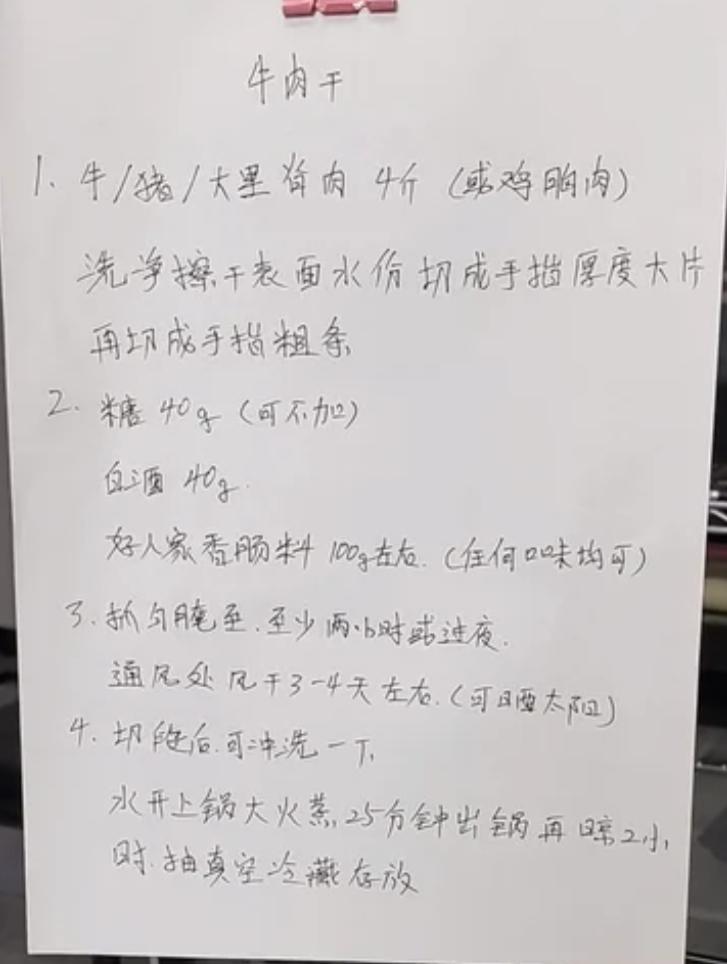 牛肉干
1. 牛/猪/大里脊肉 4斤 (或鸡胸肉)
洗净擦干表面水份 切成手指厚度大片
再切成手指粗条
2. 糖 40g (可不加)
白酒 40g.
好人家香肠料 100g左右. (任何口味均可)
3. 抓匀腌至. 至少两小时或过夜.
通风处 风干3-4天左右. (可晒太阳)
4. 切段后. 可冲洗一下,
水开上锅大火蒸, 25分钟出锅再晾2小
时. 抽真空冷藏存放